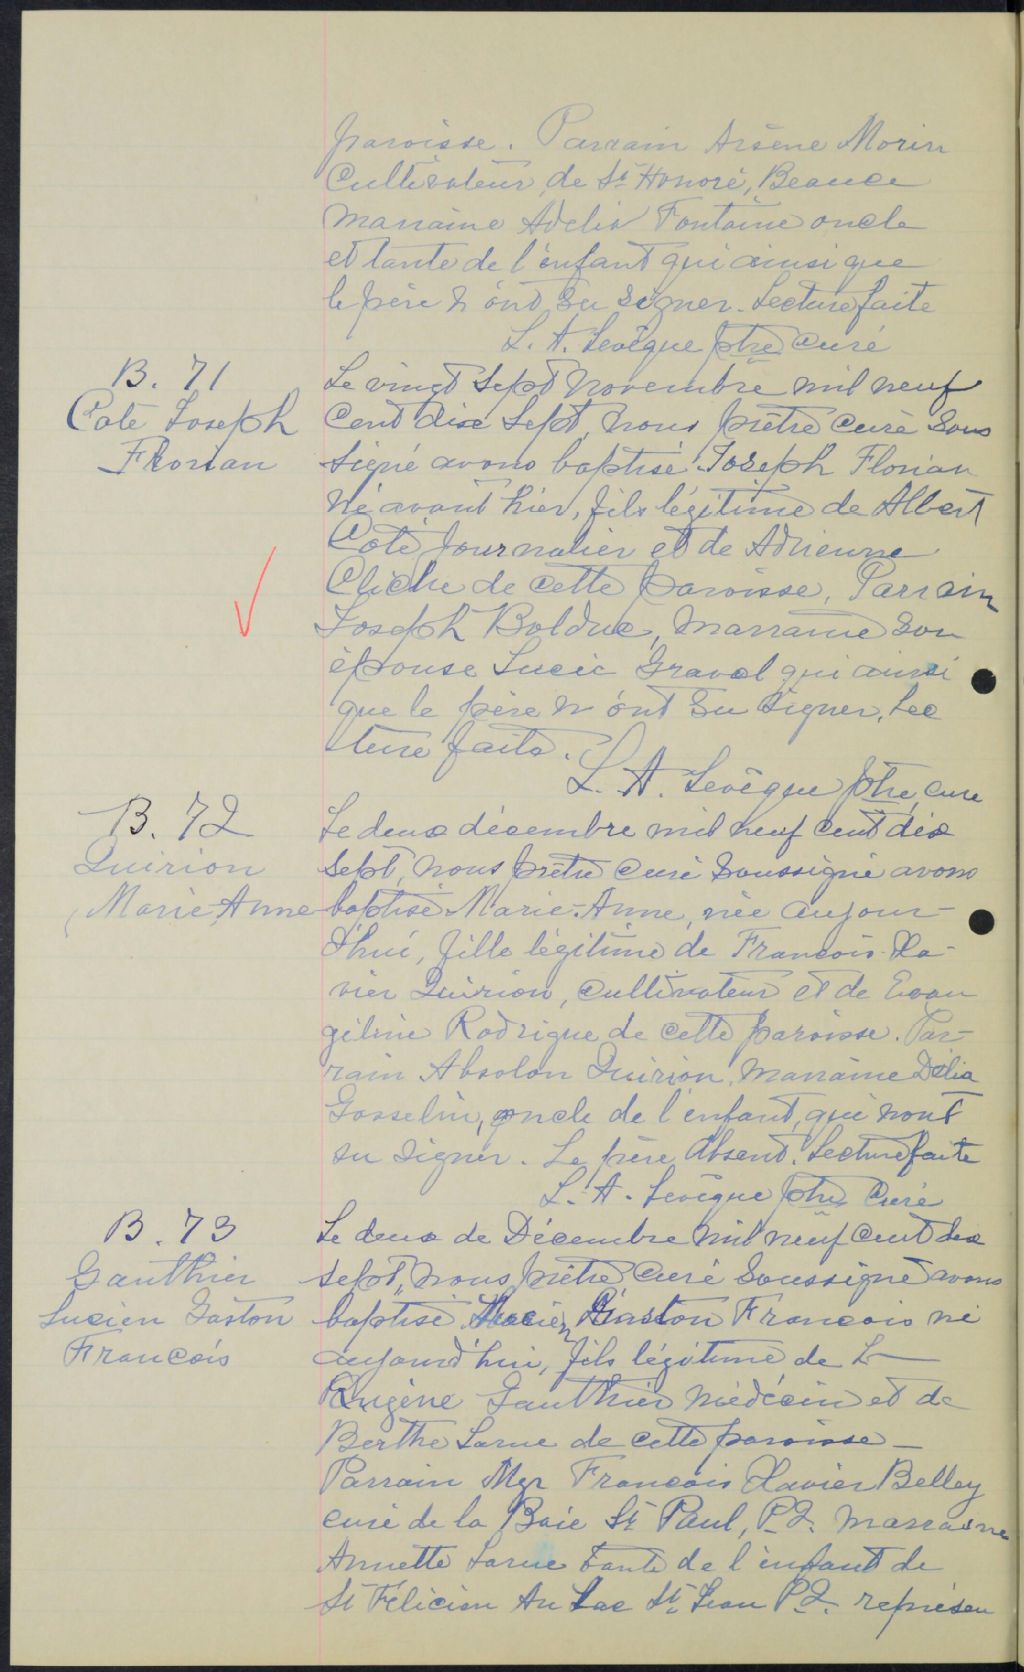 paroisse. Parrain Arsène Morin
Cultivateur de St Honoré, Beauce
Marraine Adelia Fontaine oncle
et tante de l'enfant qui ainsi que
le père n'ont su signer. Lecture faite
L. A. Levêque ptre curé
B. 71
Coté Joseph
Florian
Le vingt sept Novembre mil neuf
cent dix sept, nous prêtre curé sous
signé avons baptisé Joseph Florian
né avant hier, fils légitime de Albert
Coté journalier et de Adrienne
Cliche de cette paroisse. Parrain
Joseph Bolduc, marraine son
épouse Lucie Graval qui ainsi
que le père n'ont su signer. Lec
ture faite.
L. A. Levêque ptre, curé
B. 72
Quirion
Marie-Anne
Le deux décembre mil neuf cent dix
sept, nous prêtre curé soussigné avons
baptisé Marie-Anne, née aujour-
d'hui, fille légitime de François-Xa-
vier Quirion, cultivateur et de Evan
géline Rodrigue de cette paroisse. Par-
rain Absolon Quirion, marraine Délia
Gosselin, oncle de l'enfant, qui n'ont
su signer. Le père absent. Lecture faite
L. A. Levêque ptre Curé
B. 73
Gauthier
Lucien Gaston
François
Le deux de Décembre mil neuf cent dix
sept, nous prêtre curé soussigné avons
baptisé Lucien Gaston François né
aujourd'hui, fils légitime de L
Eugène Gauthier médecin et de
Berthe Larue de cette paroisse
Parrain Mgr François Xavier Belley
curé de la Baie St Paul, P.Q. marraine
Annette Larue tante de l'enfant de
St Félicien au Lac St Jean P.Q. représen